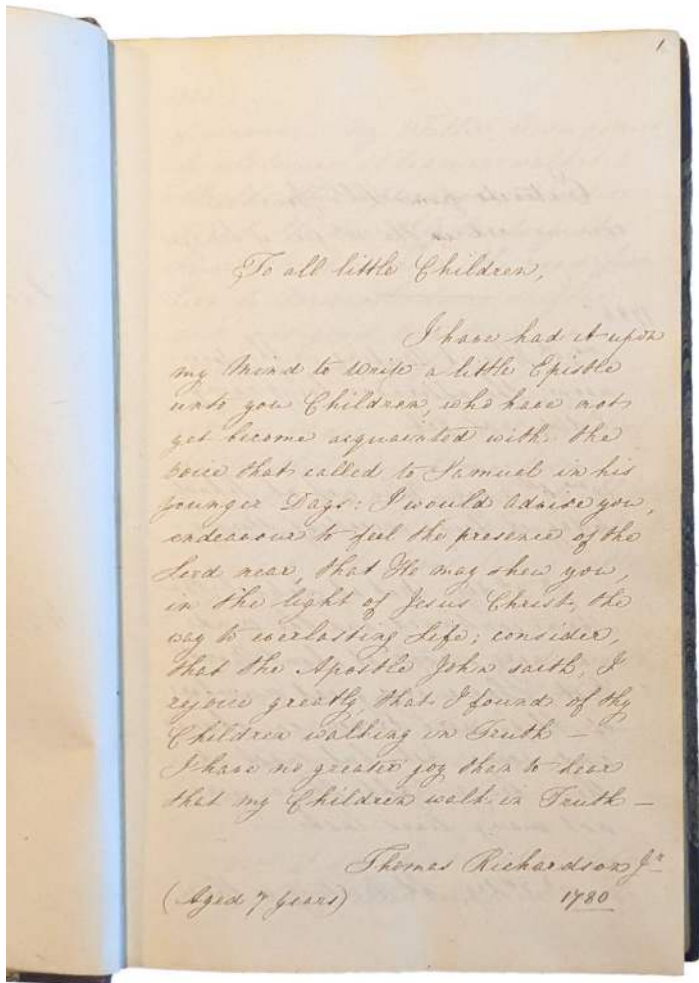 1
To all little Children,
I have had it upon
my Mind to write a little Epistle
unto you Children, who have not
yet become acquainted with the
voice that called to Samuel in his
younger Days: I would advise you,
endeavour to feel the presence of the
Lord near, that He may shew you,
in the light of Jesus Christ, the
way to everlasting Life; consider,
that the Apostle John saith, I
rejoice greatly that I found of thy
Children walking in Truth —
I have no greater joy than to hear
that my Children walk in Truth —
Thomas Richardson Jr
(Aged 7 Years) 1780